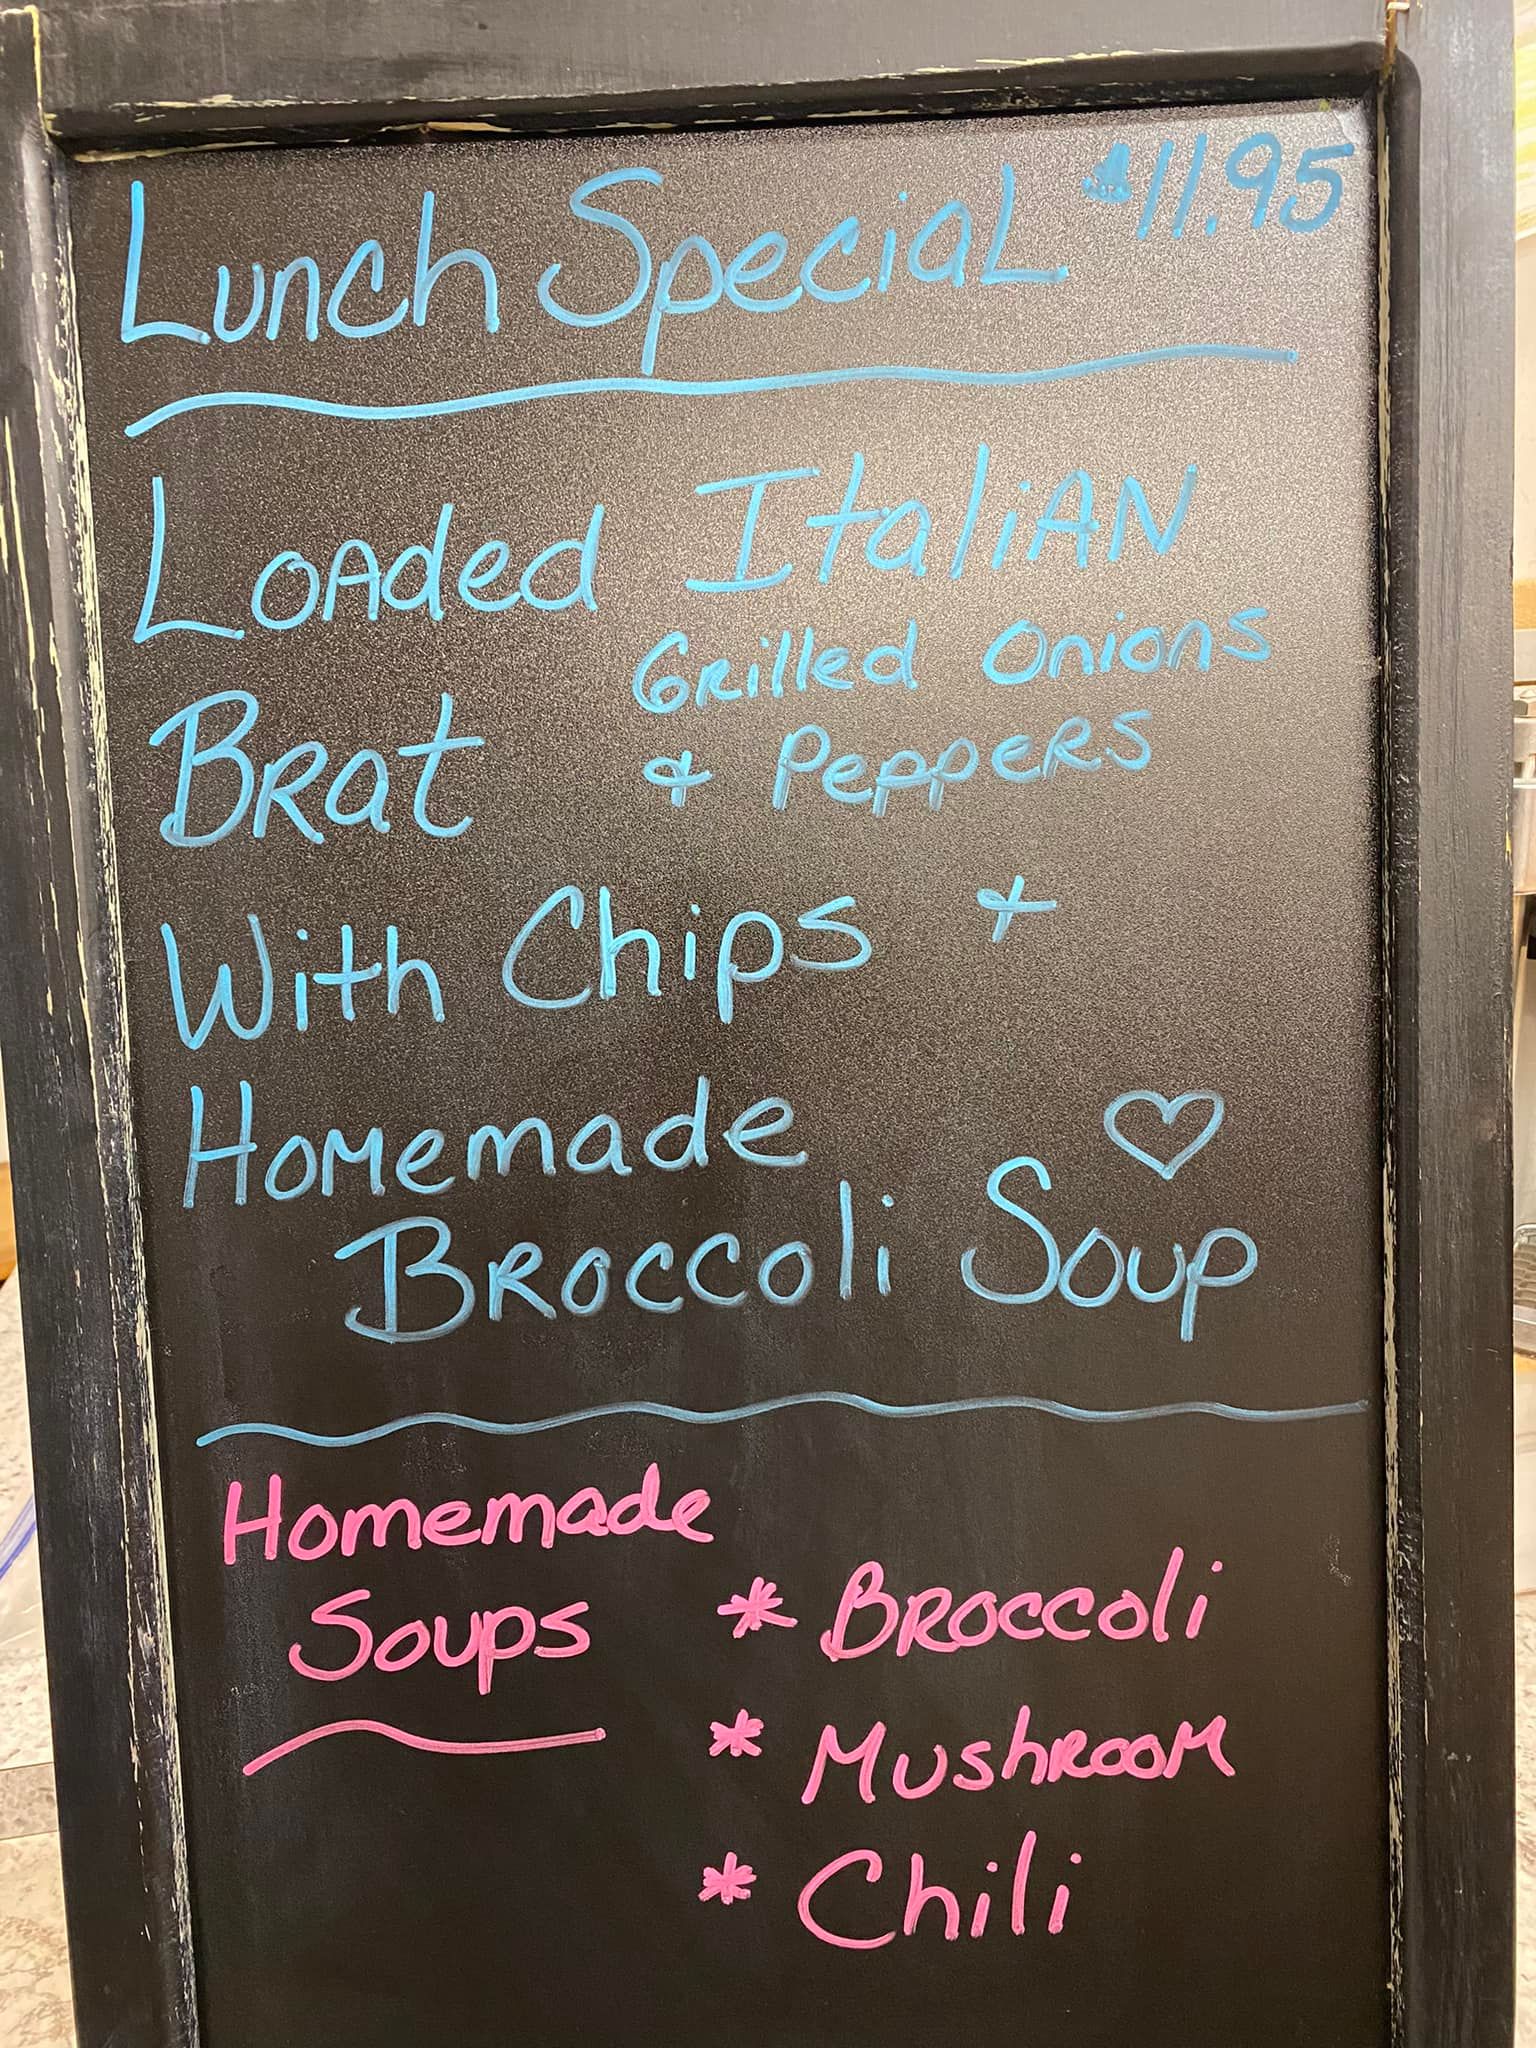 Lunch Special $11.95
Loaded Italian
Grilled Onions
Brat & Peppers
With Chips &
Homemade ♡
Broccoli Soup
Homemade
Soups * Broccoli
* Mushroom
* Chili